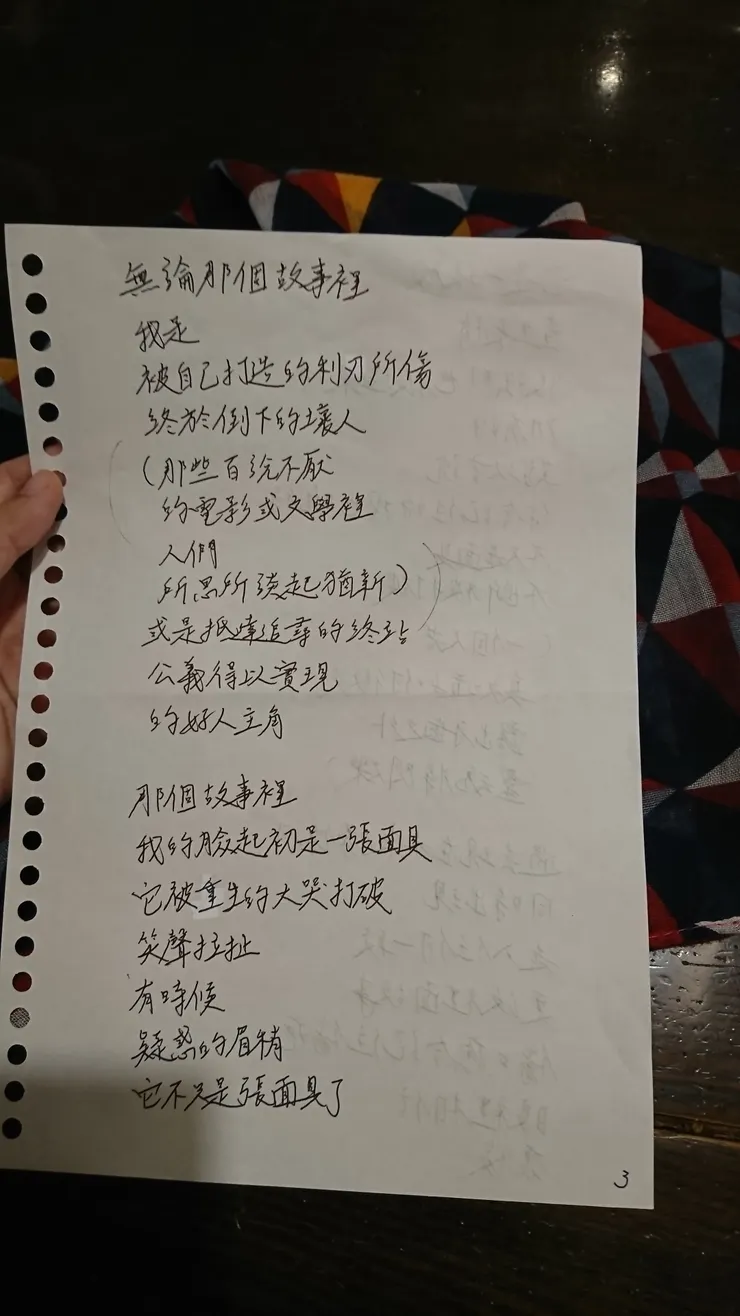 無論那個故事裡
我是
被自己打造的利刃所傷
終於倒下的壞人
(那些百說不厭
的電影或文學裡
人們
所思所談起猶新)
或是抵達追尋的終站
公義得以實現
的好人主角
那個故事裡
我的臉起初是一張面具
它被重生的大哭打破
笑聲拉扯
有時候
疑惑的眉稍
它不只是張面具了
3